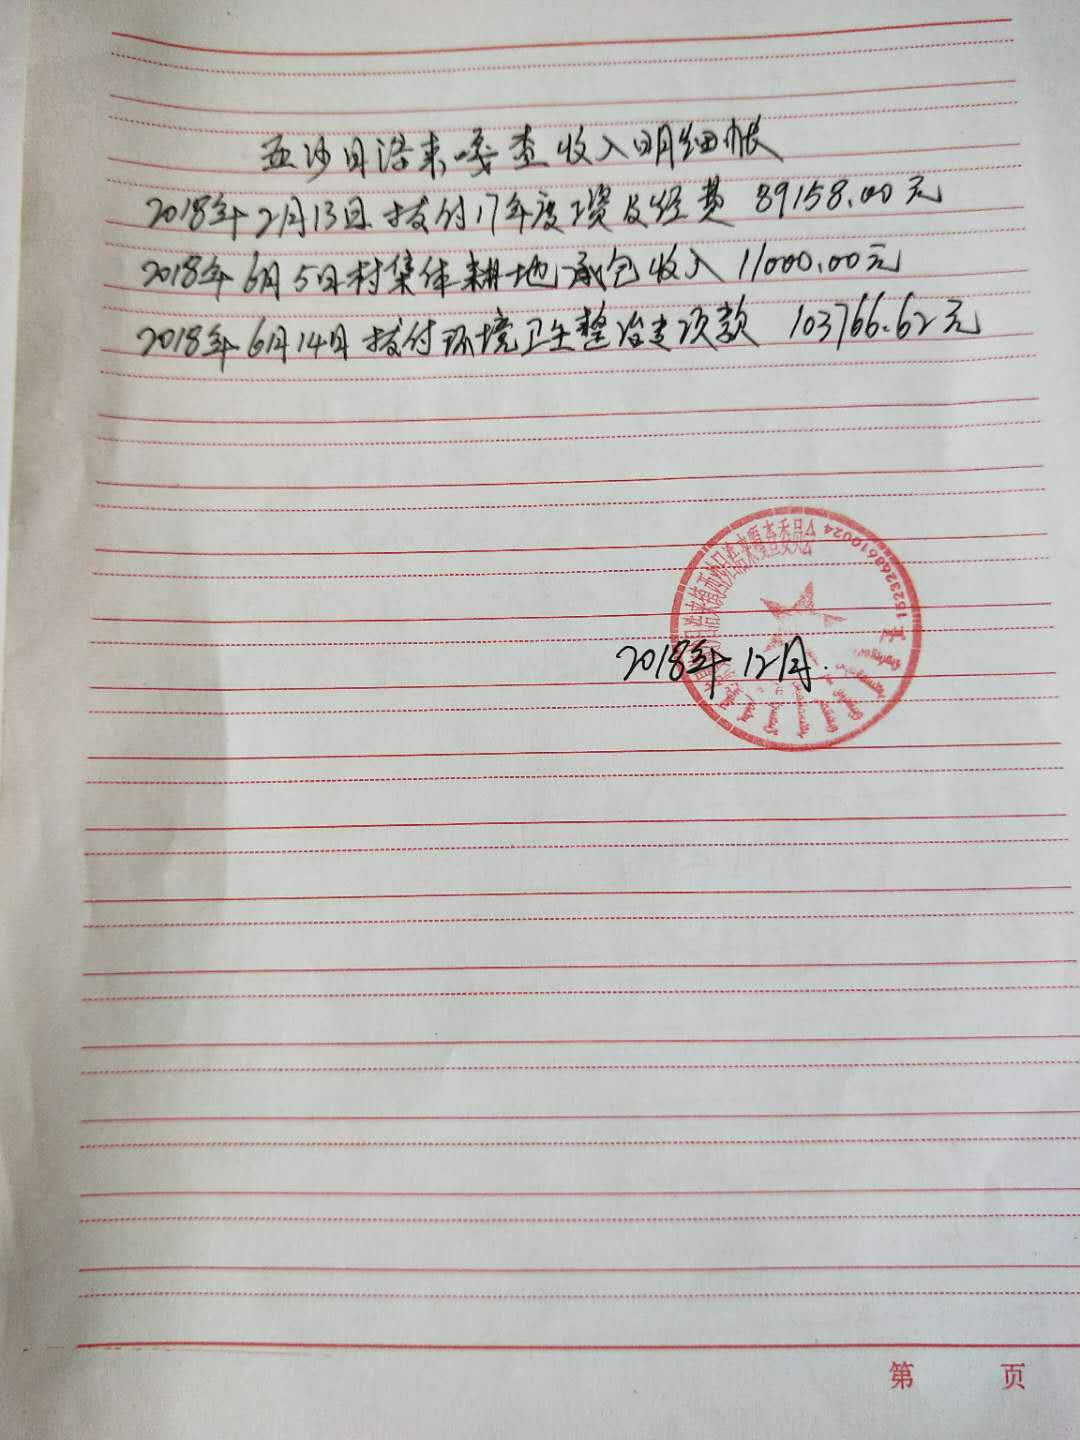 西沙日浩来嘎查收入明细帐
2018年2月13日拨付17年度工资及经费 89158.00元
2018年6月5日村集体耕地承包收入 11000.00元
2018年6月14日拨付环境卫生整治专项款 103766.62元
1523268610024
2018年12月.
第 页